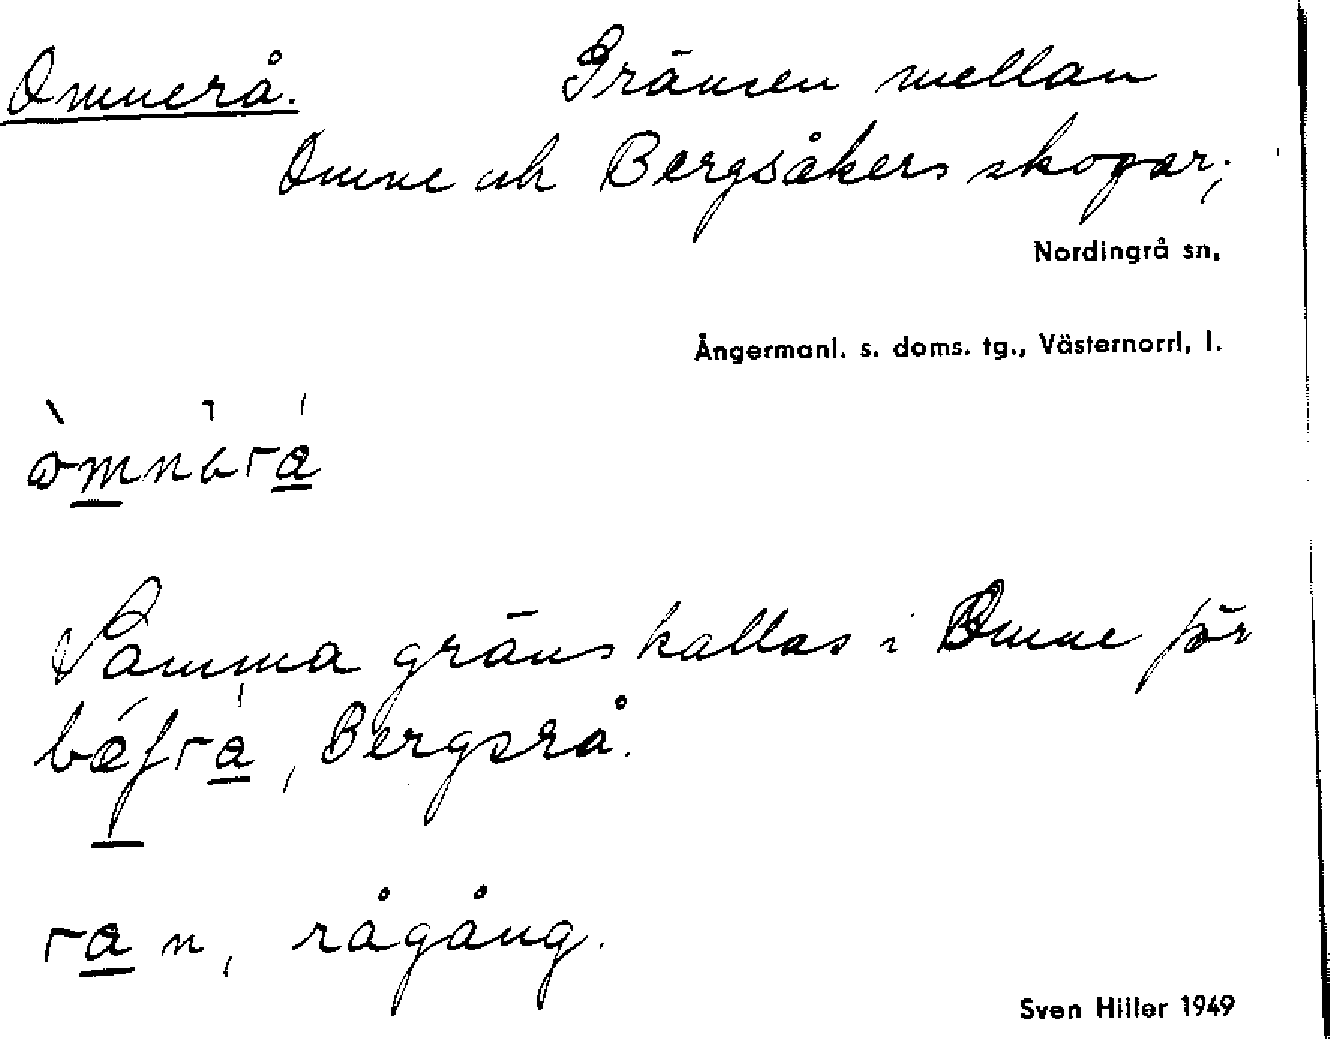 Omnerå. Gränsen mellan
Omne och Bergsåkers skogar;
Nordingrå sn,
Ångermanl. s. doms. tg., Västernorrl, l.
Samma gräns kallas i Omne för
, Bergsrå.
n, rågång.
Sven Hiller 1949